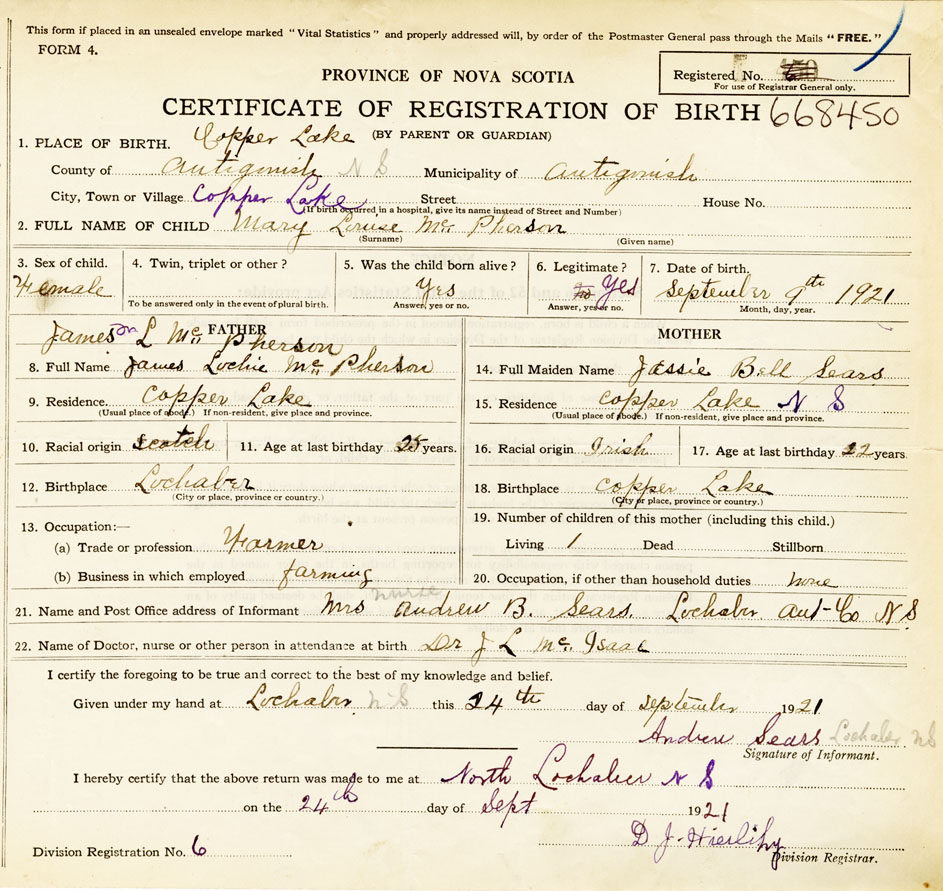 This form if placed in an unsealed envelope marked "Vital Statistics" and properly addressed will, by order of the Postmaster General pass through the Mails "FREE."
FORM 4.
Registered No.
For use of Registrar General only.
PROVINCE OF NOVA SCOTIA
CERTIFICATE OF REGISTRATION OF BIRTH 668450
(BY PARENT OR GUARDIAN)
1. PLACE OF BIRTH. Copper Lake
County of Antigonish N S Municipality of Antigonish
City, Town or Village Copper Lake Street House No.
(If birth occurred in a hospital, give its name instead of Street and Number)
2. FULL NAME OF CHILD Mary Louise Mc Pherson
(Surname) (Given name)
3. Sex of child. 4. Twin, triplet or other? 5. Was the child born alive? 6. Legitimate? 7. Date of birth.
Female Yes Yes September 9th 1921
To be answered only in the event of plural birth. Answer, yes or no. Answer, yes or no. Month, day, year.
FATHER
James L Mc Pherson
8. Full Name James Lochie Mc Pherson
9. Residence. Copper Lake
(Usual place of abode.) If non-resident, give place and province.
10. Racial origin Scotch 11. Age at last birthday 25 years.
12. Birthplace Lochaber
(City or place, province or country.)
13. Occupation:—
(a) Trade or profession Farmer
(b) Business in which employed farming
MOTHER
14. Full Maiden Name Jassie Bell Sears
15. Residence Copper Lake N S
(Usual place of abode.) If non-resident, give place and province.
16. Racial origin Irish 17. Age at last birthday 22 years
18. Birthplace Copper Lake
(City or place, province or country.)
19. Number of children of this mother (including this child.)
Living 1 Dead Stillborn
20. Occupation, if other than household duties none
nurse
21. Name and Post Office address of Informant Mrs Andrew B. Sears. Lochaber Ant-Co N S
22. Name of Doctor, nurse or other person in attendance at birth Dr J L Mc Isaac
I certify the foregoing to be true and correct to the best of my knowledge and belief.
Given under my hand at Lochaber N S this 24th day of September 1921
Andrew Sears Lochaber N S
Signature of Informant.
I hereby certify that the above return was made to me at North Lochaber N S
on the 24th day of Sept 1921
D J Hierlihy
Division Registration No. 6 Division Registrar.